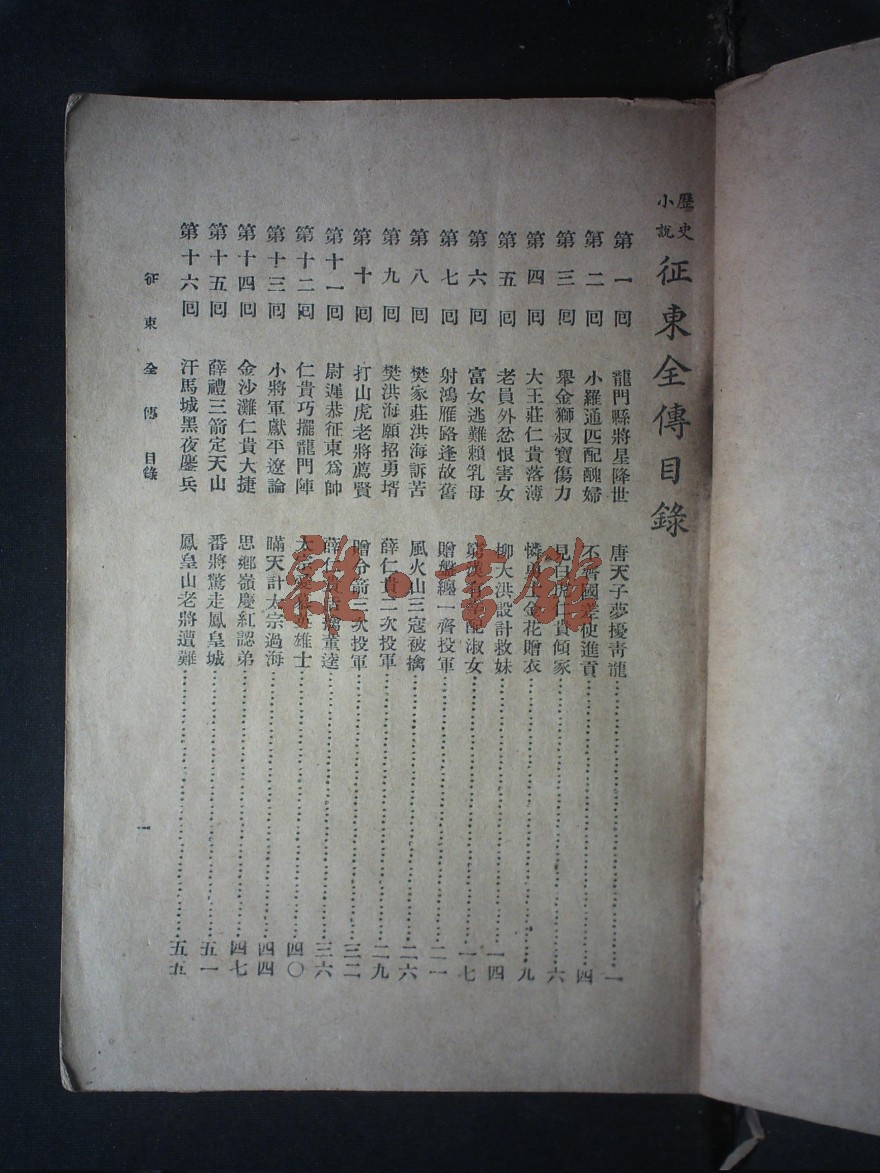 歷史小說 征東全傳目錄
第一回 龍門縣將星降世 唐天子夢擾青龍 一
第二回 小羅通匹配醜婦 不齊國差使進貢 四
第三回 舉金獅叔寶傷力 見白虎仁貴傾家 六
第四回 大王莊仁貴落薄 憐勇士金花贈衣 九
第五回 老員外忿恨害女 柳大洪設計救妹 一四
第六回 富女逃難賴乳母 窮漢 配淑女 一七
第七回 射鴻雁路逢故舊 贈盤纏一齊投軍 二一
第八回 樊家莊洪海訴苦 風火山三寇被擒 二六
第九回 樊洪海願招勇壻 薛仁貴二次投軍 二九
第十回 打山虎老將薦賢 贈令箭三次投軍 三二
第十一回 尉遲恭征東爲帥 薛仁貴 擒董逵 三六
第十二回 仁貴巧擺龍門陣 太宗 英雄士 四〇
第十三回 小將軍獻平遼論 瞞天計太宗過海 四四
第十四回 金沙灘仁貴大捷 思鄉嶺慶紅認弟 四七
第十五回 薛禮三箭定天山 番將驚走鳳皇城 五一
第十六回 汗馬城黑夜鏖兵 鳳皇山老將遭難 五五
征東全傳 目錄
一
雜·書館